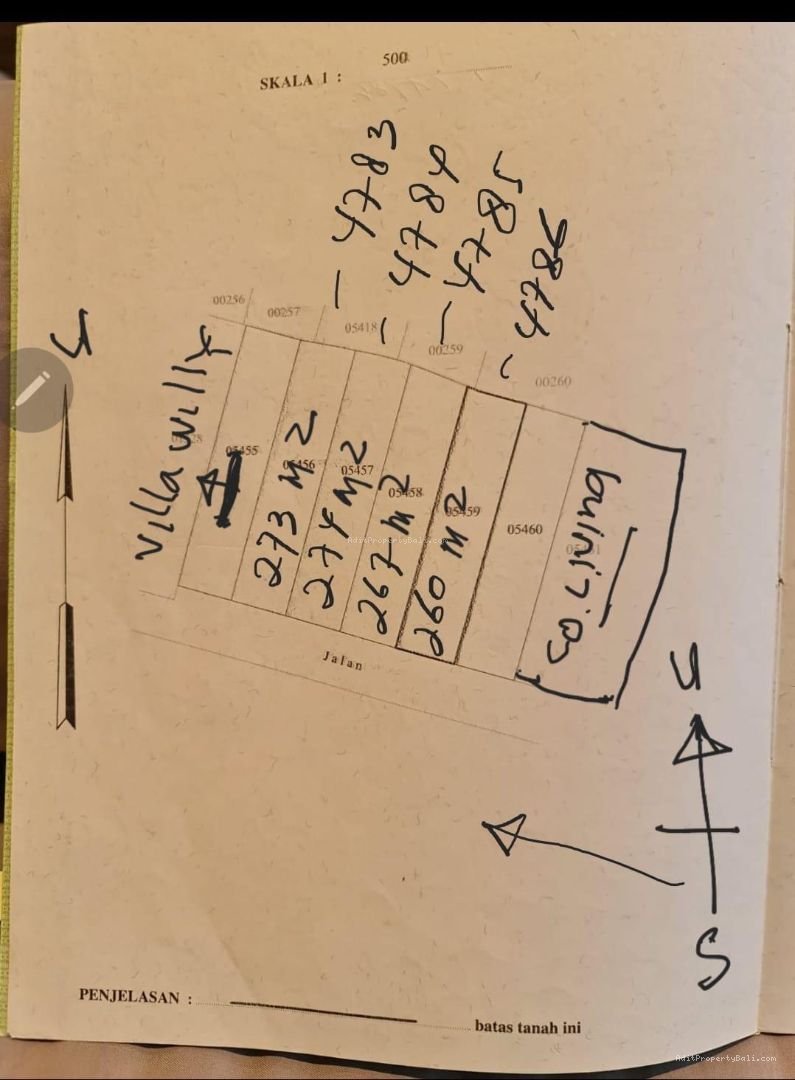 SKALA 1 : 500
- 4783
- 4784
- 4785
- 4786
00256
00257
05418
00259
00260
U
Villa Willy
05455
05456
05457
05458
05459
05460
273 M2
274 M2
267 M2
260 M2
Jalan
AdiTPropertyBali.com
U
S
PENJELASAN : batas tanah ini
AdiTPropertyBali.com